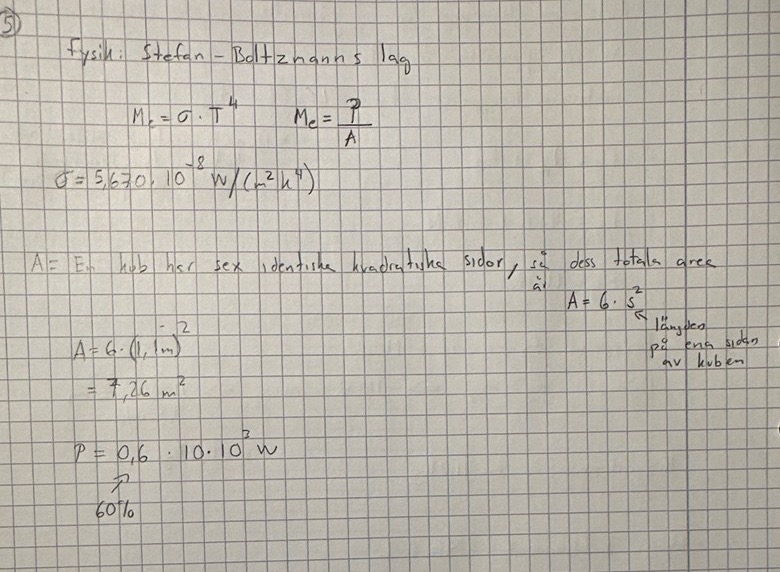 5
Fysik: Stefan-Boltzmanns lag
Me = σ · T⁴   Me = P/A
σ = 5,670 · 10⁻⁸ W/(m²k⁴)
A = En kub har sex identiska kvadratiska sidor, så dess totala area
är
A = 6 · s²
längden
på ena sidan
av kuben
A = 6 · (1,1m)²
= 7,26 m²
P = 0,6 · 10 · 10³ W
↗
60%